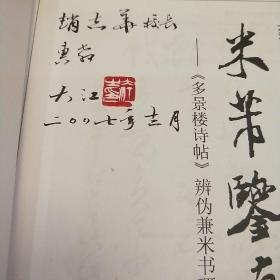 赵志华校长
惠存
大江
二〇〇七年十二月
米芾鑒
——《多景楼诗帖》辨伪兼米书